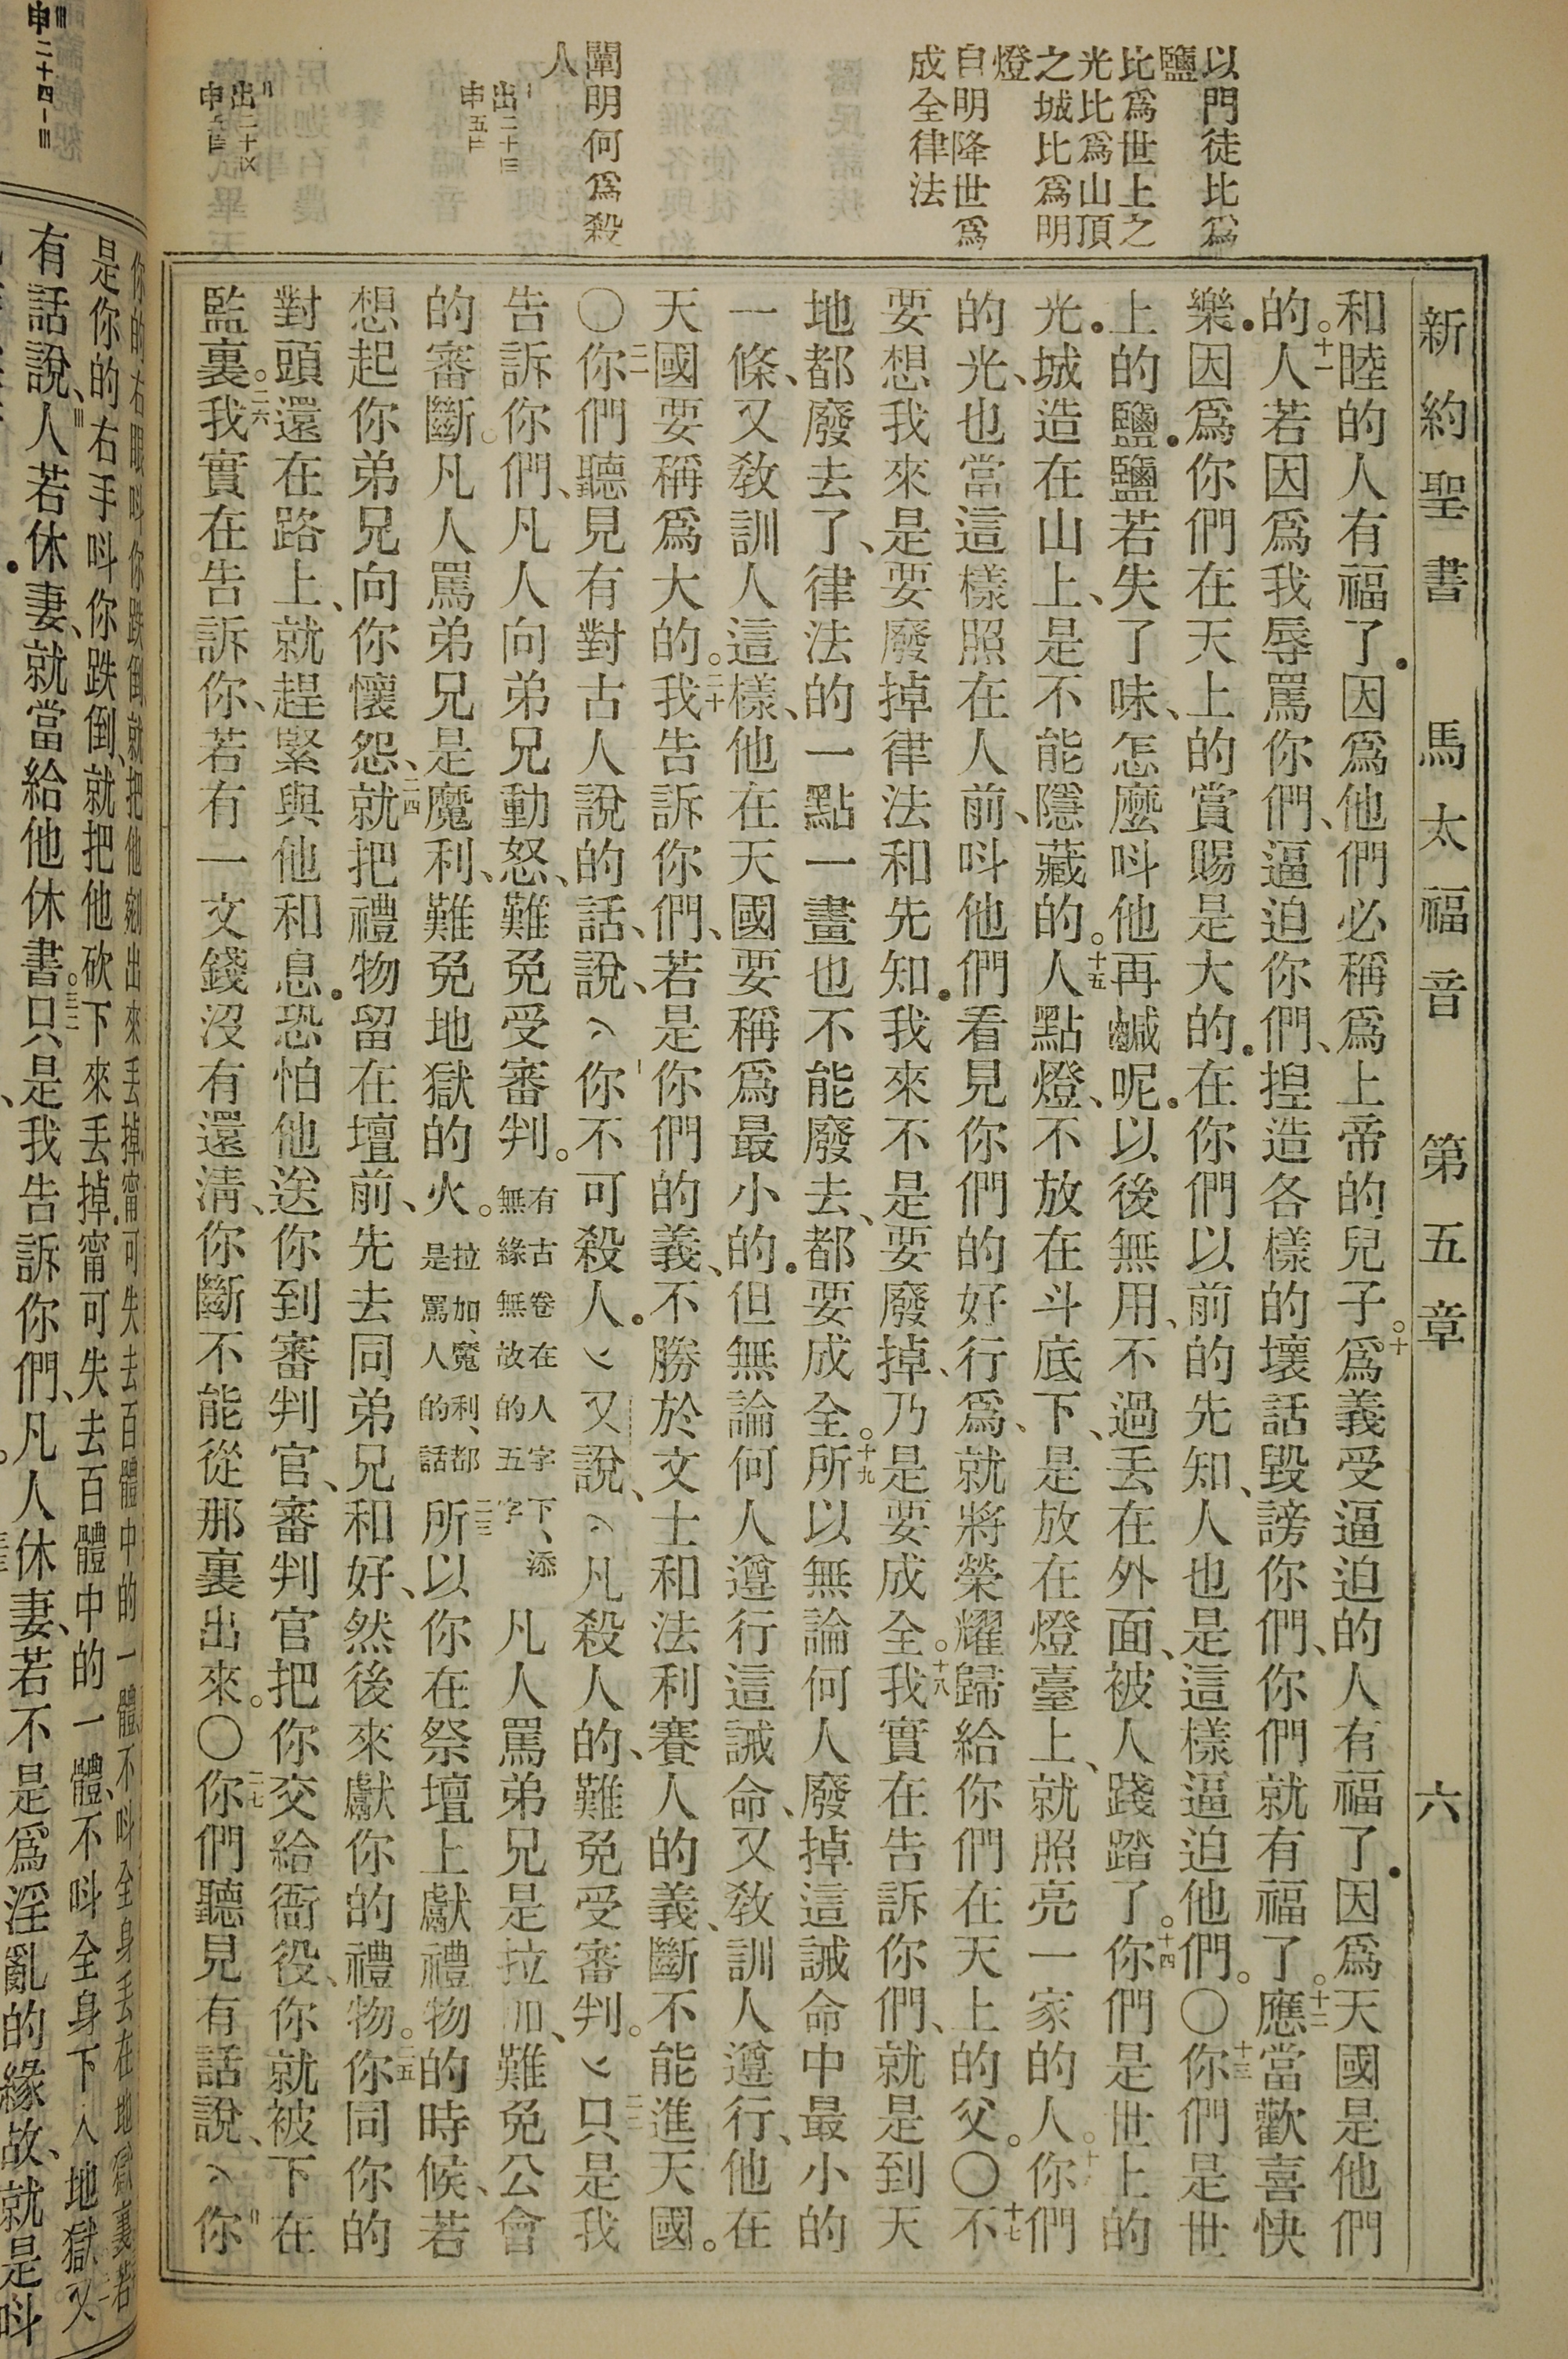 新約聖書　馬太福音　第五章　六
以門徒比爲
鹽
比爲世上之
光比爲山頂
之城比爲明
燈
自明降世爲
成全律法
闡明何爲殺
人
和睦的人有福了.因爲他們必稱爲上帝的兒子。十爲義受逼迫的人有福了.因爲天國是他們
的。十一人若因爲我辱罵你們、逼迫你們、揑造各樣的壞話毀謗你們、你們就有福了。十二應當歡喜快
樂.因爲你們在天上的賞賜是大的.在你們以前的先知、人也是這樣逼迫他們。〇十三你們是世
上的鹽.鹽若失了味、怎麼呌他再鹹呢.以後無用、不過丟在外面、被人踐踏了。十四你們是世上的
光.城造在山上、是不能隱藏的。十五人點燈、不放在斗底下、是放在燈臺上、就照亮一家的人。你們
的光、也當這樣照在人前、呌他們看見你們的好行爲、就將榮耀歸給你們在天上的父。〇十七不
要想我來是要廢掉律法和先知.我來不是要廢掉、乃是要成全。十八我實在告訴你們、就是到天
地都廢去了、律法的一點一畫也不能廢去、都要成全。十九所以無論何人廢掉這誡命中最小的
一條、又敎訓人這樣、他在天國要稱爲最小的.但無論何人遵行這誡命、又敎訓人遵行、他在
天國要稱爲大的。二十我告訴你們、若是你們的義、不勝於文士和法利賽人的義、斷不能進天國。
〇二一你們聽見有對古人說的話、說、你不可殺人.又說、凡殺人的、難免受審判。二二只是我
告訴你們、凡人向弟兄動怒、難免受審判。有古卷在人字下、添無緣無故的五字 凡人罵弟兄是拉加、難免公會
的審斷。凡人罵弟兄是魔利、難免地獄的火。拉加、魔利、都是罵人的話 二三所以你在祭壇上獻禮物的時候、若
想起你弟兄向你懷怨、二四就把禮物留在壇前、先去同弟兄和好、然後來獻你的禮物。二五你同你的
對頭還在路上、就趕緊與他和息.恐怕他送你到審判官、審判官把你交給衙役、你就被下在
監裏。二六我實在告訴你、若有一文錢沒有還淸、你斷不能從那裏出來。〇二七你們聽見有話說、你
你的右眼呌你跌倒、就把他剜出來丟掉.甯可失去百體中的一體、不呌全身丟在地獄裏。若
是你的右手呌你跌倒、就把他砍下來丟掉.甯可失去百體中的一體、不呌全身下入地獄。又
有話說、人若休妻、就當給他休書。三二只是我告訴你們、凡人休妻、若不是爲淫亂的緣故、就是呌